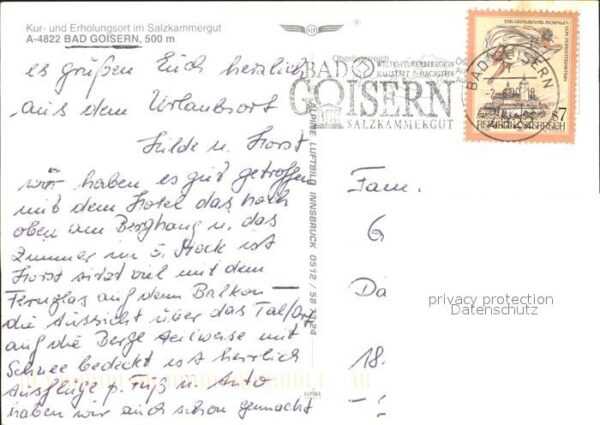 Kur- und Erholungsort im Salzkammergut
A-4822 BAD GOISERN, 500 m
es grüßen Euch herzlich
aus dem Urlaubsort
Hilde u. Horst
wir haben es gut getroffen
mit dem Hotel das hoch
oben am Berghang u. das
Zimmer im 5. Stock ist
Horst sitzt viel mit dem
Fernglas auf dem Balkon –
die Aussicht über das Tal/Ort
auf die Berge teilweise mit
Schnee bedeckt ist herrlich
Ausflüge p. Fuß u. Auto
haben wir auch schon gemacht
ALPINE LUFTBILD INNSBRUCK 0512 / 58
Oberösterreich
WELTKULTURERBEREGION
HALLSTATT DACHSTEIN
BAD
GOISERN
SALZKAMMERGUT
BAD GOISERN
S7
REPUBLIK ÖSTERREICH
Fam.
G
Da
18
privacy protection
Datenschutz